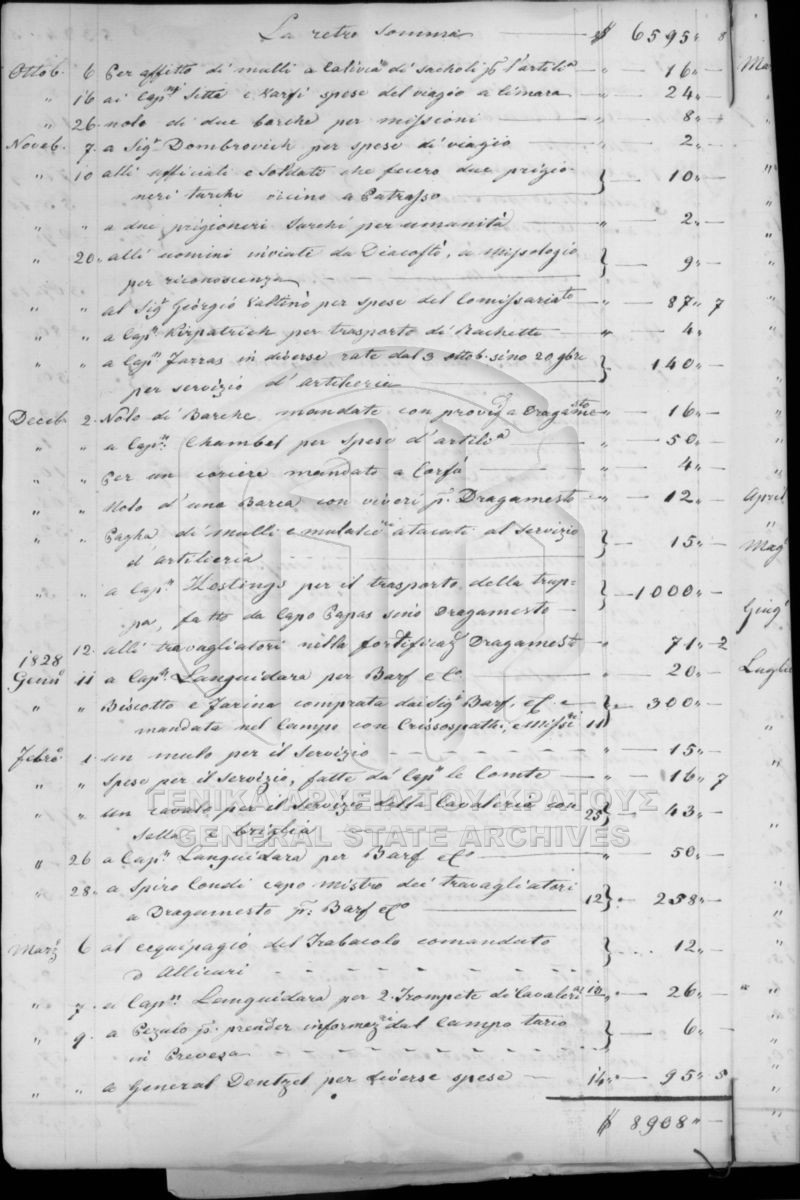 La retro somma — $ 6595 " 8
Ottob. 6 Per affitto di mulli a Calivia di Sacholi pr l'artilia " — 16 " —
" 16 ai Capni Sitta e Karfi spese del viagio a Cimara " — 24 " —
" 26 nolo di due barche per missioni — " — 8 " —
Noveb. 7 a Sigr Dombrovich per spese di viagio — " — 2 " —
" 10 alli ufficiali e soldati che fecero due prigio
neri turchi vicino a Patrasso } — 10 " —
" " a due prigioneri turchi per umanità — " — 2 " —
" 20 alli uomini inviati da Diacofti, a Missologio
per riconoscenza } — 9 " —
" " al Sigr Giorgio Valtinò per spese del Comissariato — 87 " 7
" " a Capn Kirpatrich per trasporto di Rachette — " — 4 " —
" " a Capn Farras in diverse rate dal 3 ottob. sino 20 9bre
per servizio d'artileria } 140 " —
Deceb. 2 Nolo di Barche mandate con provigi a Dragamesto " — 16 " —
" " a Capn Chambel per spese d'artilia — " — 50 " —
" " Per un coriere mandato a Corfù — " — 4 " —
" " Nolo d'una Barca con viveri pr Dragamesto — " — 12 " —
" " Pagha di mulli e mulatieri atacati al servizio
d'artilieria } — 15 " —
" " a Capn Hostings per il trasporto della trup-
pa, fatto da Capo Papas sino Dragamesto } — 1000 " —
" 12 alli travagliatori nella fortificaz Dragamest " 71 " 2
1828
Genno 11 a Capn Languidara per Barf e Co — " — 20 " —
" " Biscotto e farina comprata dai Sigi Barf, e C. e
mandata nel Campo con Crissospathi, e Missi 11 } — 300 " —
Febro 1 un mulo per il servizio — " — 15 " —
" " Spese per il servizio, fatte da Capn le Comte — " — 16 " 7
" " un cavalo per il servizio della Cavaleria con
sella e briglia 25 } — 43 " —
" 26 a Capn Languidara per Barf e Co — " — 50 " —
" 28 a Spiro Condi capo mistro dei travagliatori
a Dragamesto pr: Barf e Co 12 } — 258 " —
Marz 6 al equipagio del Trabacolo comandato
D Allicari } — 12 " —
" 7 a Capn Languidara per 2 Trompete di Cavaleria 10 — 26 " —
" 9 a Pezulo pr prender informazni dal Campo turco
in Prevesa } — 6 " —
" " a General Dentzel per diverse spese — 14 " — 95 " 5
$ 8908 " —
Mar
April
Mag
Giug
Luglio
ΓΕΝΙΚΑ ΑΡΧΕΙΑ ΤΟΥ ΚΡΑΤΟΥΣ
GENERAL STATE ARCHIVES